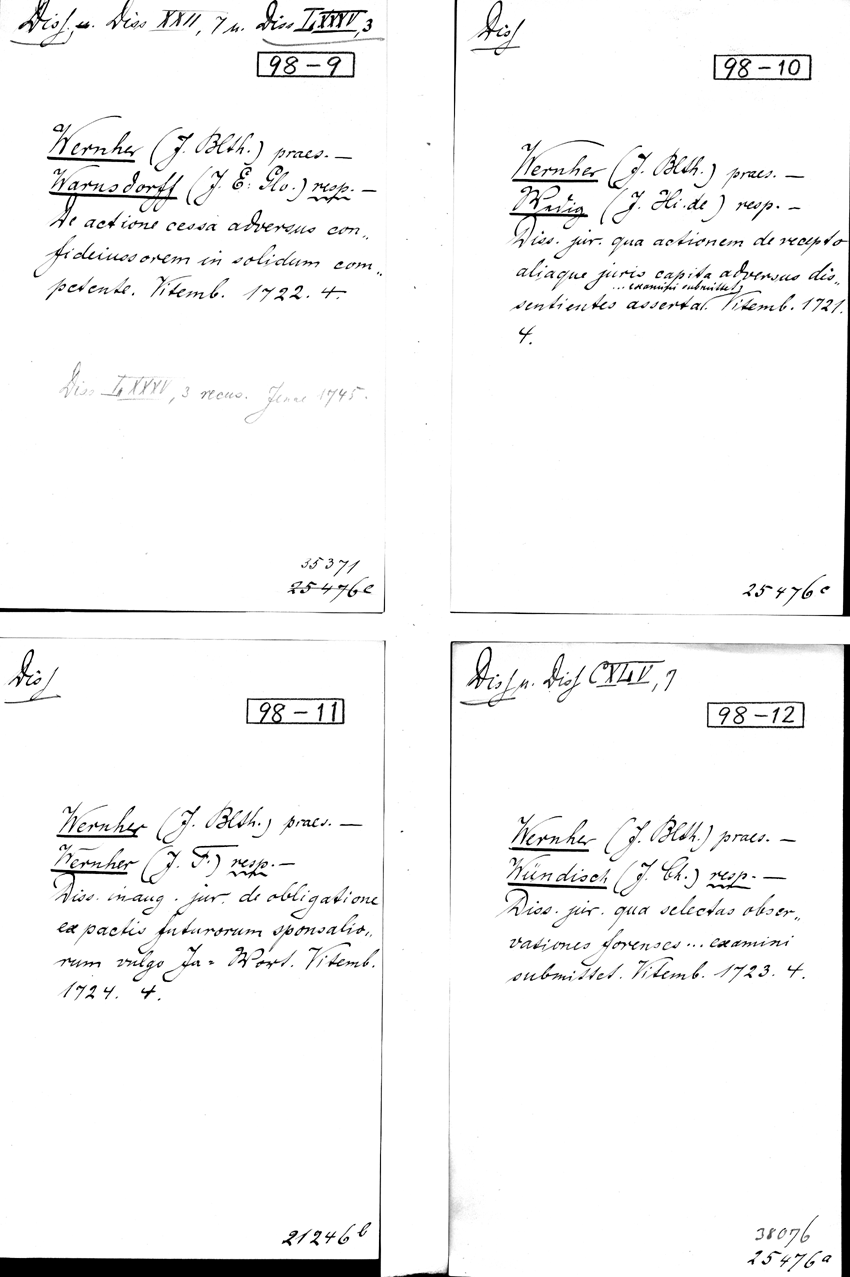 Diss. u. Diss XXII, 7 u. Diss LXXXV, 3
98-9
Wernher (J. Blth.) praes. —
Warnsdorff (J. E. Glo.) resp. —
De actione cessa adversus con„
fideiussorem in solidum com„
petente. Vitemb. 1722. 4.
Diss LXXXV, 3 recus. Jenae 1745.
35371
25476e
Diss
98-10
Wernher (J. Blth.) praes. —
Wedig (J. Hi.de) resp. —
Diss. jur. qua actionem de recepto
aliaque juris capita adversus dis„
... examini submittet
sentientes asserta. Vitemb. 1721.
4.
25476c
Diss
98-11
Wernher (J. Blth.) praes. —
Wernher (J. F.) resp. —
Diss. inaug. jur. de obligatione
ex pactis futurorum sponsalio„
rum vulgo Ja= Wort. Vitemb.
1724. 4.
21246b
Diss u. Diss CXLV, 7
98-12
Wernher (J. Blth.) praes. —
Wündisch (J. Ch.) resp. —
Diss. jur. qua selectas obser„
vationes forenses ... examini
submittet. Vitemb. 1723. 4.
38076
25476a